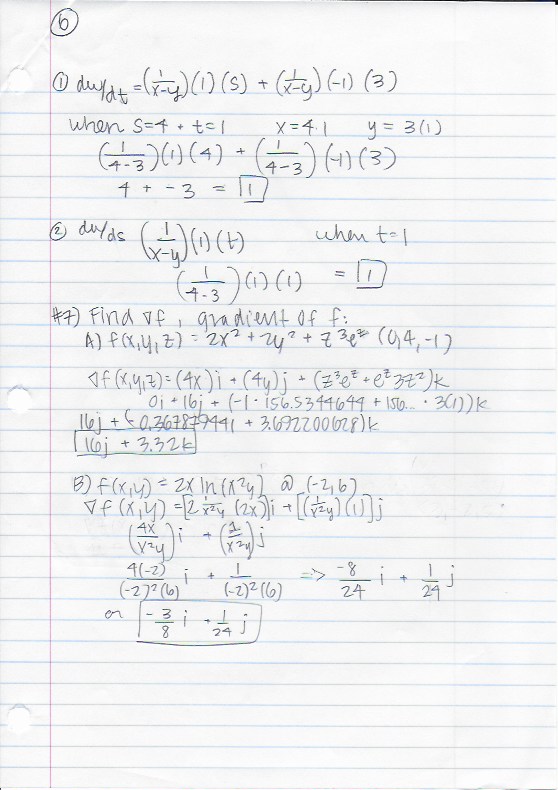 6
① dw/dt = (1/x-y)(1)(s) + (1/x-y)(-1)(3)
when s=4 + t=1 x=4·1 y=3(1)
(1/4-3)(1)(4) + (1/4-3)(-1)(3)
4 + -3 = 1
② dw/ds (1/x-y)(1)(t) when t=1
(1/4-3)(1)(1) = 1
#7) Find ∇f, gradient of f:
A) f(x,y,z) = 2x² + 2y² + z³eᶻ (0,4,-1)
∇f(x,y,z) = (4x)i + (4y)j + (z³eᶻ + eᶻ3z²)k
0i + 16j + (-1 · 156.5344644 + 156... · 3(1))k
16j + (-0.367879441 + 3.692200628)k
16j + 3.32k
B) f(x,y) = 2x ln(x²y) @ (-2,6)
∇f(x,y) = [2 1/x²y (2x)]i + [(1/x²y)(1)]j
(4x/x²y)i + (1/x²y)j
4(-2)/(-2)²(6) i + 1/(-2)²(6) => -8/24 i + 1/24 j
or -3/8 i + 1/24 j